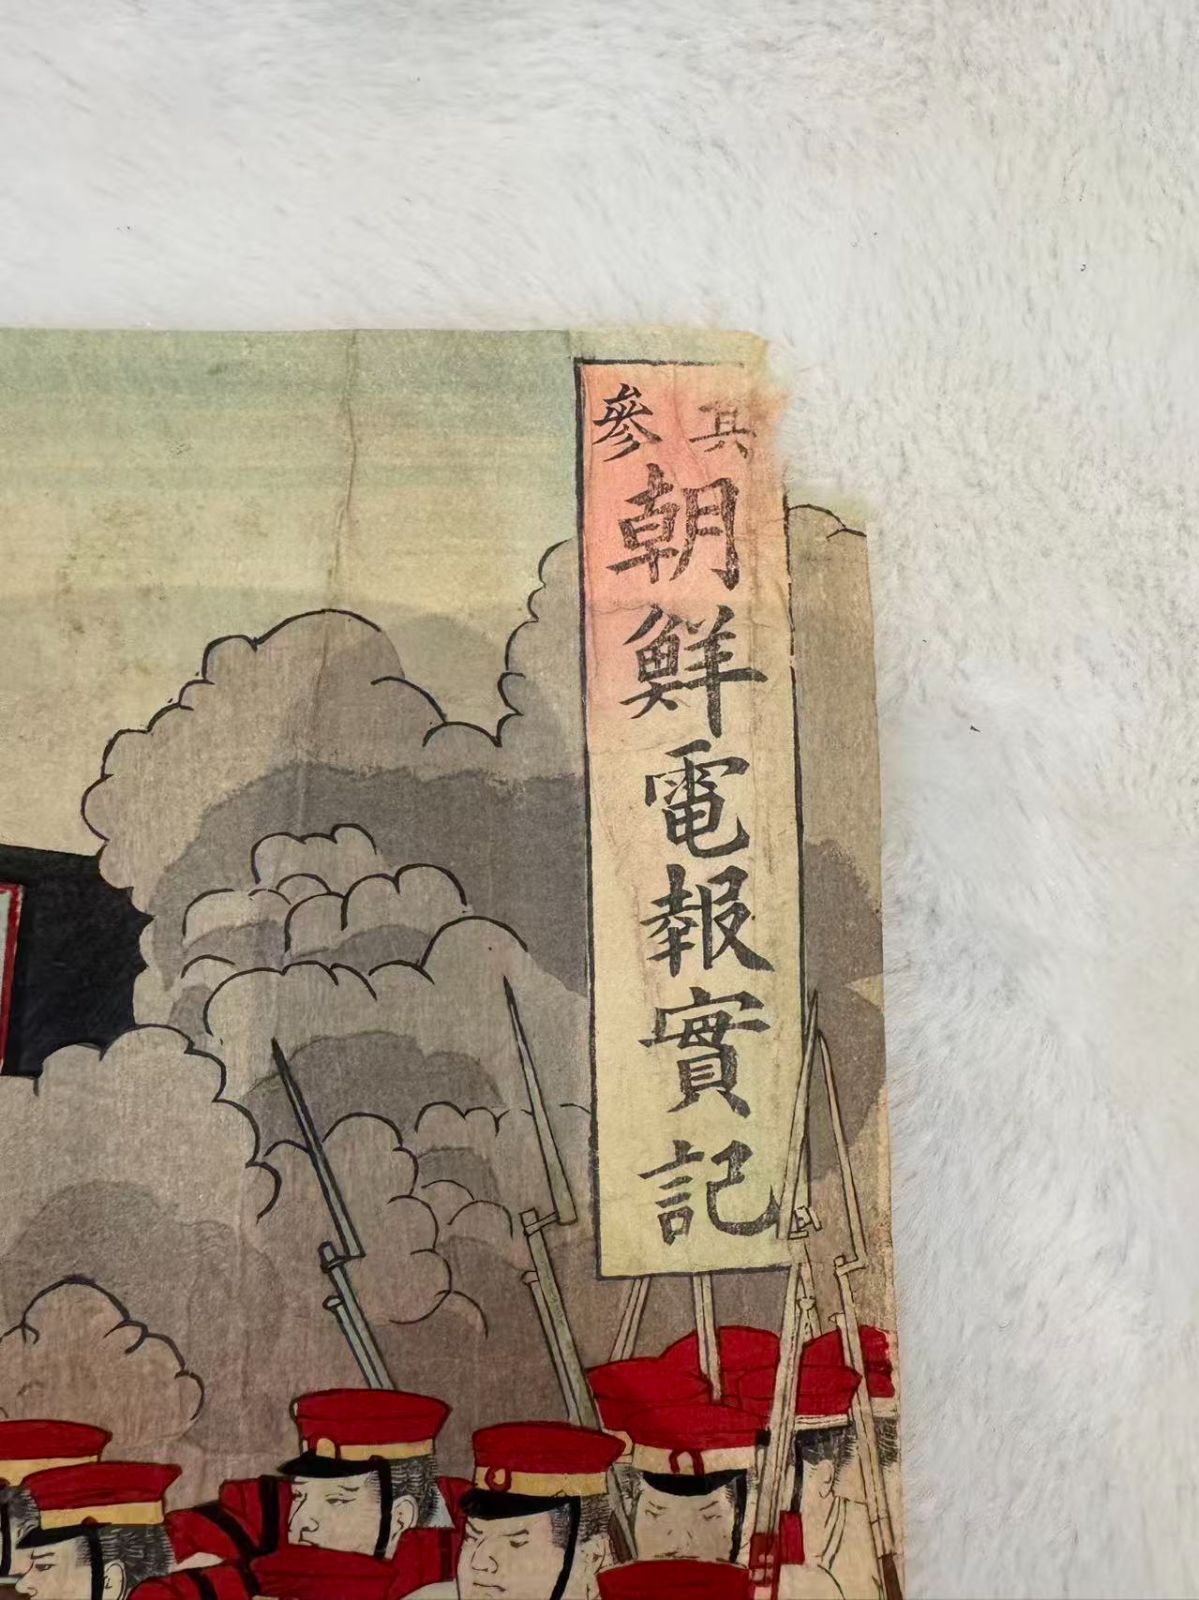 其參
朝鮮電報實記